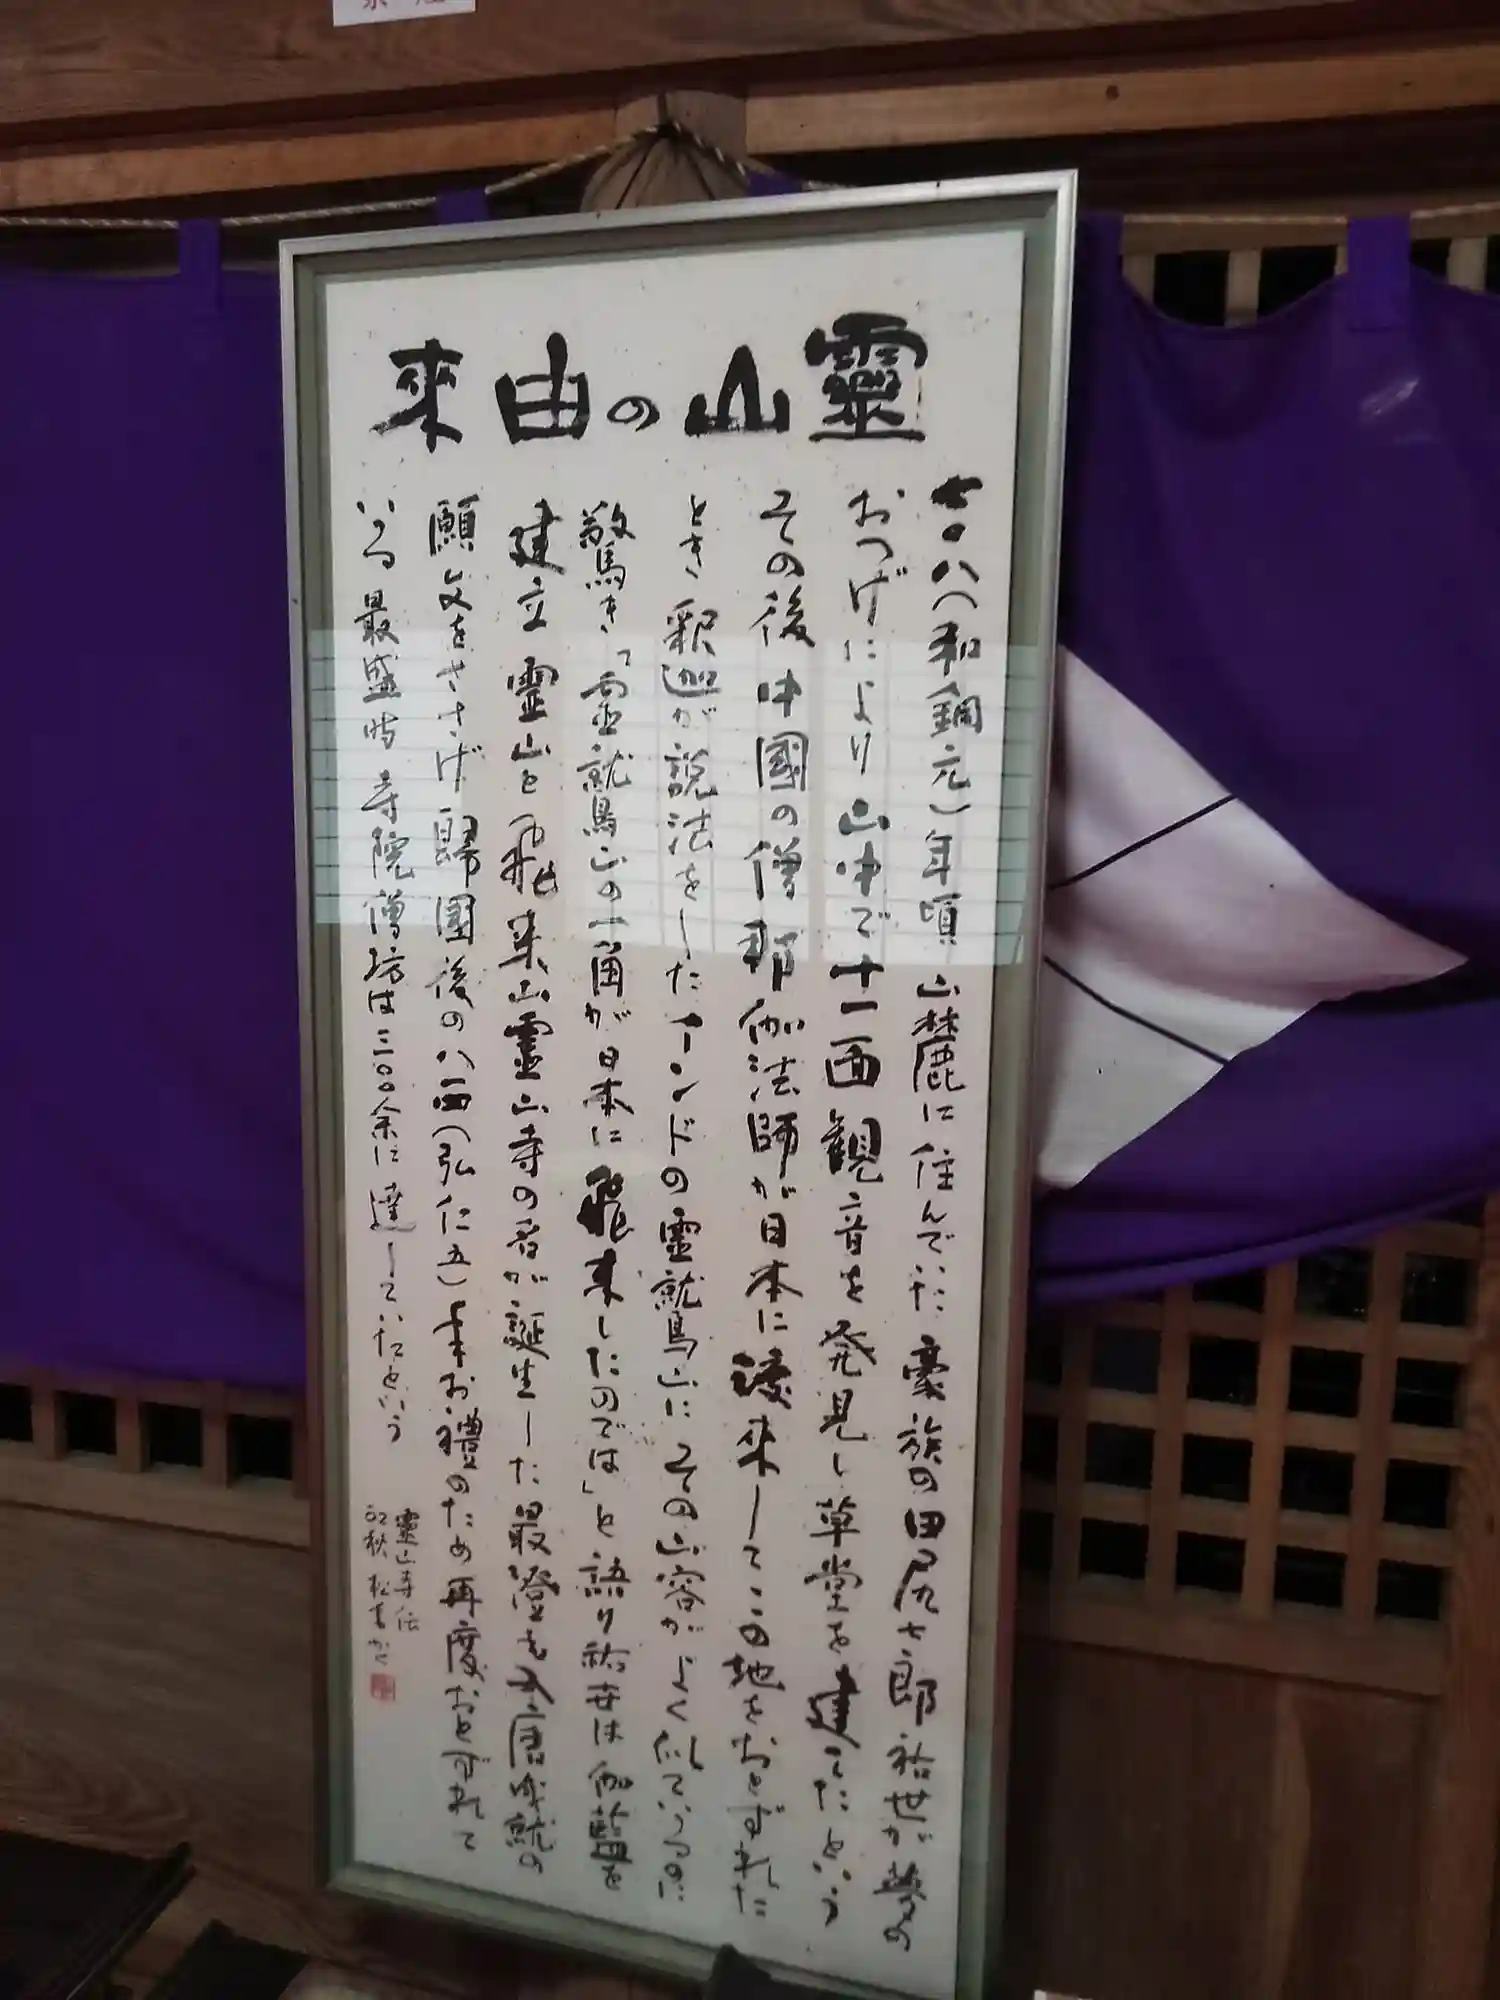 靈山の由来
七〇八(和銅元)年頃山麓に住んでいた豪族の田尻七郎祐世が夢の
おつげにより山中で十一面観音を発見し草堂を建てたという
その後中國の僧那伽法師が日本に渡来してこの地をおとずれた
とき釈迦が説法をしたインドの霊鷲山にその山容がよく似ているのに
驚き「霊鷲山の一角が日本に飛来したのでは」と語り祐世は伽藍を
建立霊山を飛来山霊山寺の名が誕生した最澄も入唐成就の
願文をささげ歸國後の八一四(弘仁五)年お禮のため再度おとずれて
いる最盛時寺院僧坊は三〇〇余に達していたという
靈山寺伝